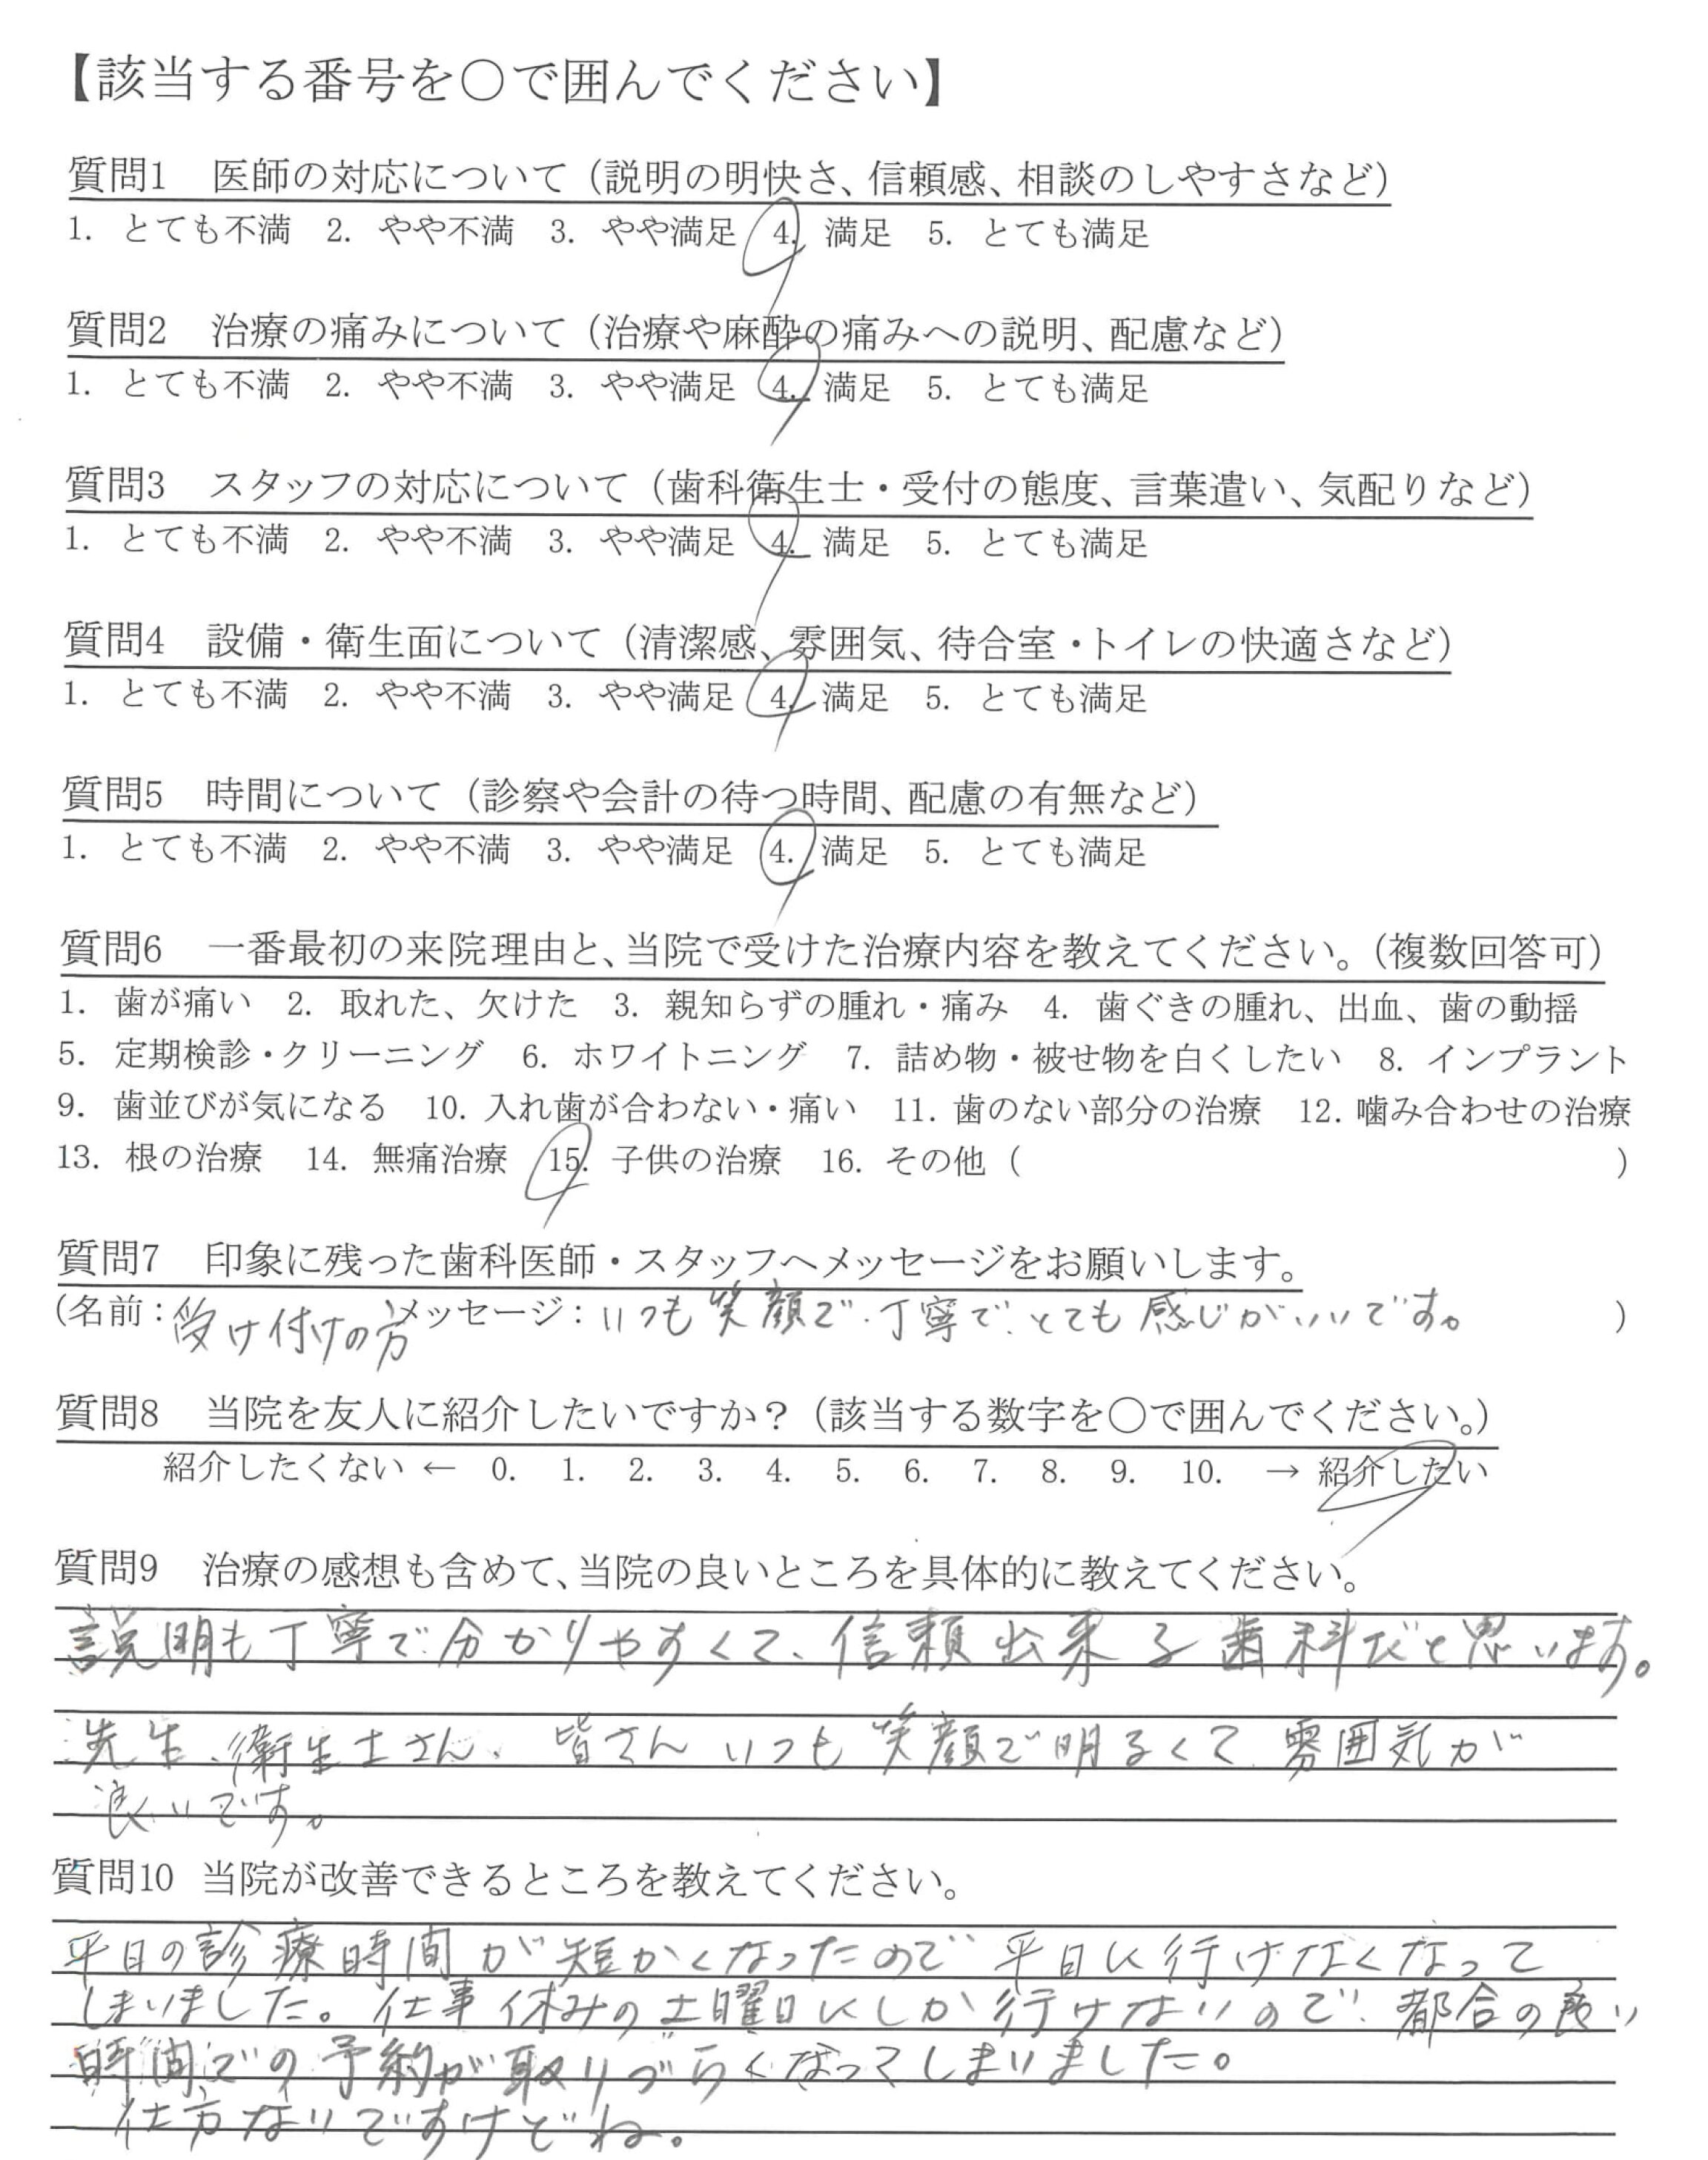 【該当する番号を○で囲んでください】
質問1 医師の対応について（説明の明快さ、信頼感、相談のしやすさなど）
1. とても不満 2. やや不満 3. やや満足 4. 満足 5. とても満足
質問2 治療の痛みについて（治療や麻酔の痛みへの説明、配慮など）
1. とても不満 2. やや不満 3. やや満足 4. 満足 5. とても満足
質問3 スタッフの対応について（歯科衛生士・受付の態度、言葉遣い、気配りなど）
1. とても不満 2. やや不満 3. やや満足 4. 満足 5. とても満足
質問4 設備・衛生面について（清潔感、雰囲気、待合室・トイレの快適さなど）
1. とても不満 2. やや不満 3. やや満足 4. 満足 5. とても満足
質問5 時間について（診察や会計の待つ時間、配慮の有無など）
1. とても不満 2. やや不満 3. やや満足 4. 満足 5. とても満足
質問6 一番最初の来院理由と、当院で受けた治療内容を教えてください。（複数回答可）
1. 歯が痛い 2. 取れた、欠けた 3. 親知らずの腫れ・痛み 4. 歯ぐきの腫れ、出血、歯の動揺
5. 定期検診・クリーニング 6. ホワイトニング 7. 詰め物・被せ物を白くしたい 8. インプラント
9. 歯並びが気になる 10. 入れ歯が合わない・痛い 11. 歯のない部分の治療 12. 噛み合わせの治療
13. 根の治療 14. 無痛治療 15. 子供の治療 16. その他（ ）
質問7 印象に残った歯科医師・スタッフへメッセージをお願いします。
（名前：受け付けの方 メッセージ：いつも笑顔で、丁寧で、とても感じがいいです。）
質問8 当院を友人に紹介したいですか？（該当する数字を○で囲んでください。）
紹介したくない ← 0. 1. 2. 3. 4. 5. 6. 7. 8. 9. 10. → 紹介したい
質問9 治療の感想も含めて、当院の良いところを具体的に教えてください。
説明も丁寧で分かりやすくて、信頼出来る歯科だと思います。
先生、衛生士さん、皆さんいつも笑顔で明るくて、雰囲気が
良いです。
質問10 当院が改善できるところを教えてください。
平日の診療時間が短かくなったので 平日に行けなくなって
しまいました。仕事休みの土曜日にしか行けないので、都合の良い
時間での予約が取りづらくなってしまいました。
仕方ないですけどね。